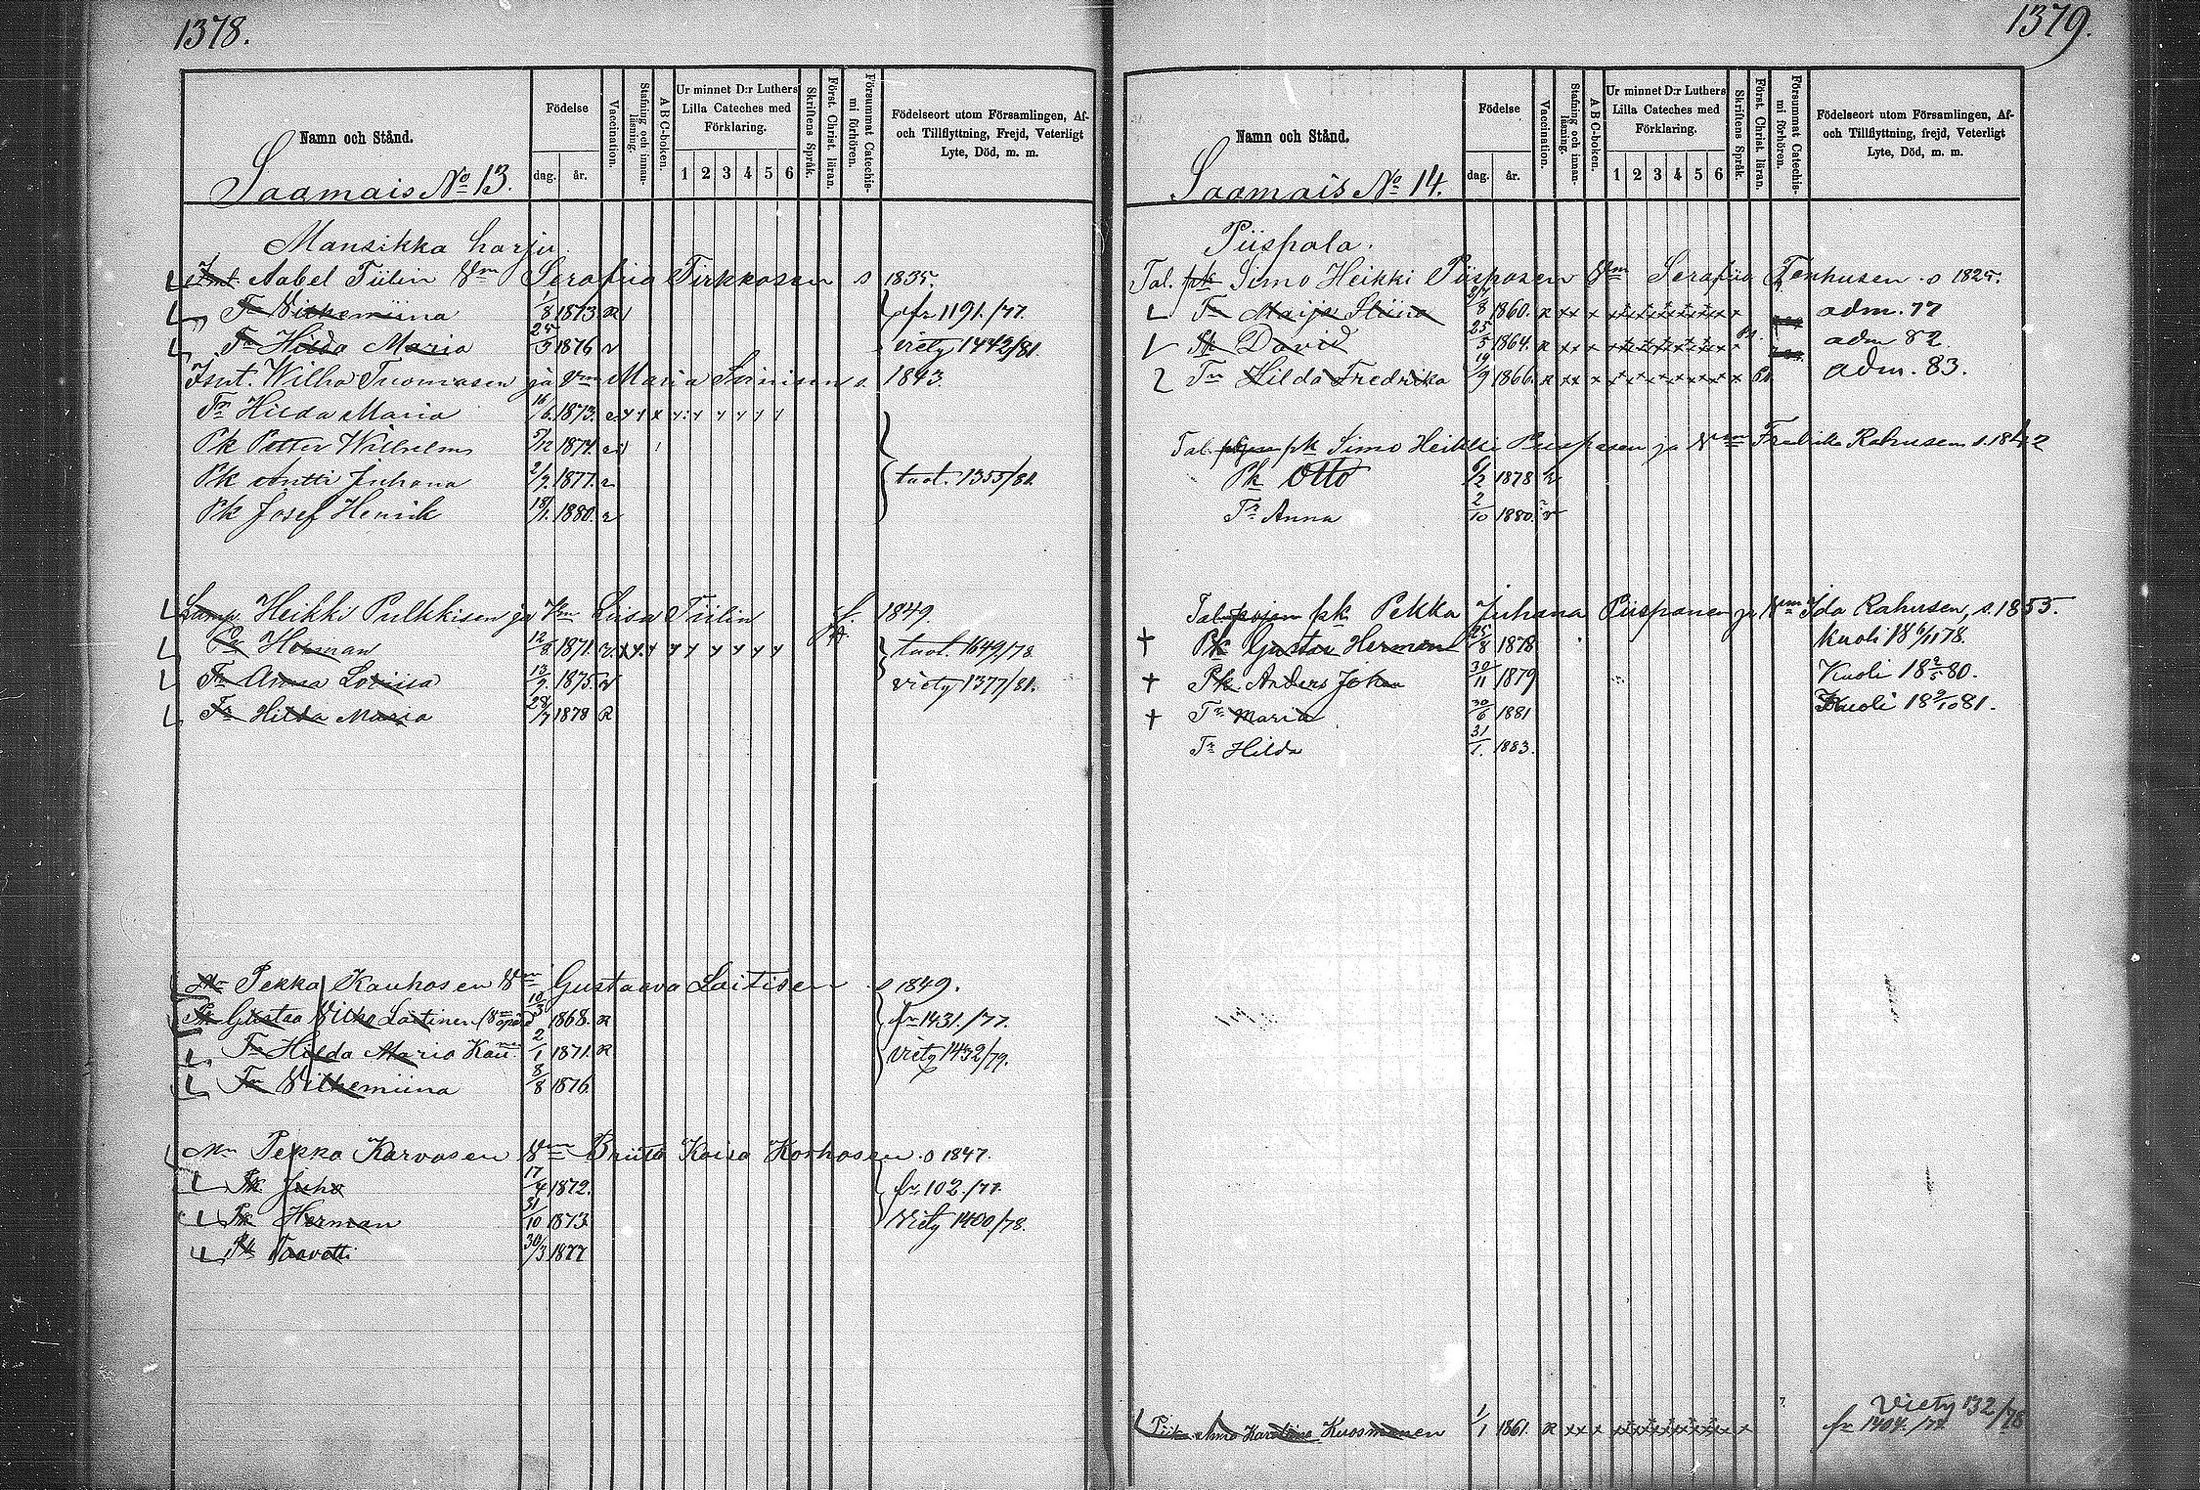 1378.
Namn och Stånd.
Födelse
dag. år.
Vaccination.
Stafning och innanläsning.
A B C-boken.
Ur minnet D:r Luthers
Lilla Cateches med
Förklaring.
1 2 3 4 5 6
Skriftens Språk.
Först. Christ. läran.
Försummat Catechismi förhören.
Födelseort utom Församlingen, Af-
och Tillflyttning, Frejd, Veterligt
Lyte, Död, m. m.
Saamais No 13.
Mansikka harju.
Aabel Tiilin Vm Serafiia Tirkkosen s 1835.
Tr Vilhemiina 1/8 1873 R fr 1191./77.
Tr Hilda Maria 25/3 1876 viety 1442/81.
Isnt. Wilho Tuomasen ja Vm Maria s. 1843.
Tr Hilda Maria 16/6 1873.
Pk Petter Wilhelm 5/12 1874.
Pk Antti Juhana 2/2 1877. tuol. 1355/81.
Pk Josef Henrik 18/1. 1880.
Lamp Heikki Pulkkisen ja Vm Liisa Tiilin f. 1849.
Herman 12/8 1871. tuol. 1649/78
Tr Anna Loviisa 13/9 1875. viety 1377/81.
Tr Hilda Maria 28/7 1878 R
Pekka Kauhasen Vm Gustaava Laitisen s 1849.
Gustaa Vilho Laitinen 10/3 1868. R fr 1431./77.
Tr Hilda Maria Kau 2/1 1871. R viety 1432/79.
Tr Vilhemiina 8/8 1876.
Mn Pekka Karvosen Vm Briita Kaisa Korhosen s 1847.
Pk Juho 17/4 1872. fr. 102./77.
Pk Herman 31/10 1873. Viety 1400/78.
Pk Taavetti 30/3 1877
1379.
Namn och Stånd.
Födelse
dag. år.
Vaccination.
Stafning och innanläsning.
A B C-boken.
Ur minnet D:r Luthers
Lilla Cateches med
Förklaring.
1 2 3 4 5 6
Skriftens Språk.
Först. Christ. läran.
Försummat Catechismi förhören.
Födelseort utom Församlingen, Af-
och Tillflyttning, frejd, Veterligt
Lyte, Död, m. m.
Saamais No 14.
Piispala.
Tal. pk Simo Heikki Piisposen Vm Serafiia Tenhusen s 1825.
Tr Maija Stiina 1860. R xx x adm. 77
Pk David 25/5 1864. R xx x adm 82.
Tr Hilda Fredrika 19/9 1866. R xx x adm. 83.
Tal. pojan pk Simo Heikki Piispasen ja Vm Fredrika Rahusen s. 1842
Pk Otto 6/2 1878
Tr Anna 2/10 1880.
Tal pojan pk Pekka Juhana Piispanen ja Vm Ida Rahusen, s. 1855.
† Pk Gustav Herman 25/8 1878 kuoli 18 6/11 78.
† Pk Anders Johan 30/11 1879 Kuoli 18 2/5 80.
† Tr Maria 30/6 1881 Kuoli 18 2/10 81.
Tr Hilda 31/1. 1883.
Viety 132/78
Piika Anna Karoliina Kuosmanen 1/1 1861. R xx x fr 1404./77